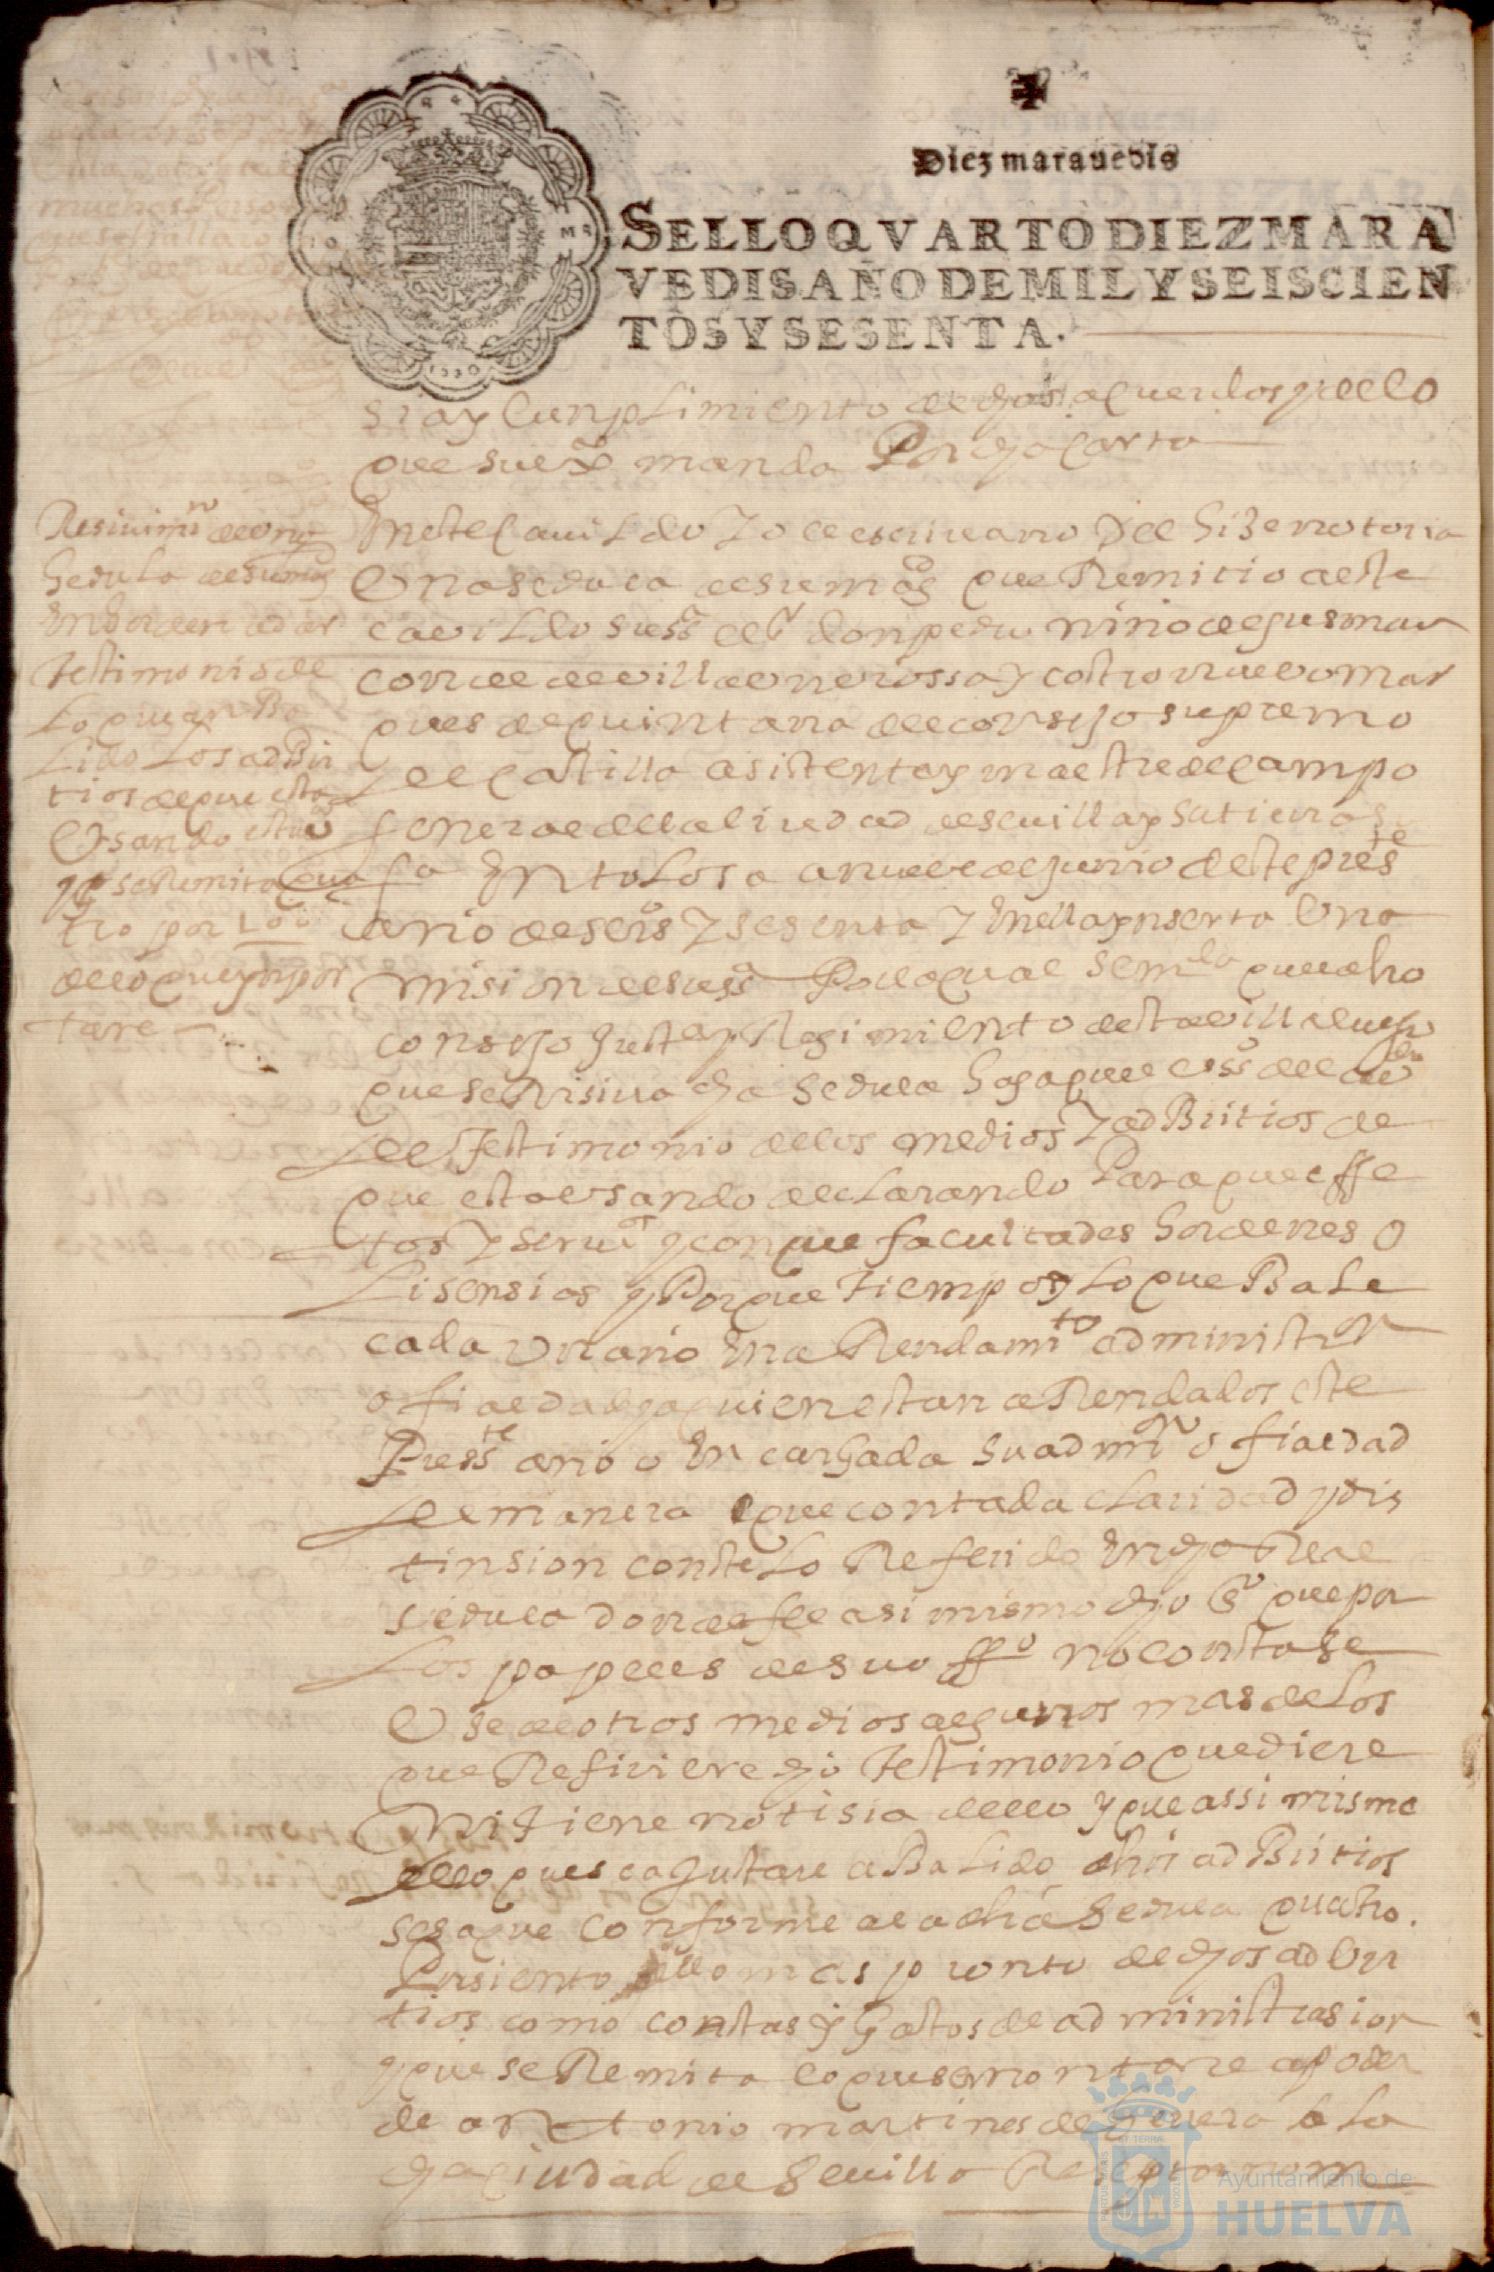 Diez marauedis
SELLO QVARTO DIEZ MARA
VEDIS AÑO DE MIL Y SEISCIEN
TOS Y SESENTA.
sia y Cunplimiento de dhos aCuerdos y de lo
que su exª manda Por dha Carta
Resiuimº de Una
Sedula de su magd
En horden a dar
testimonio de
Lo que an Ba
Lido Los adBi
tios de que esta
Usando esta
y se Remita qua
tro por 100
de lo que ynpor
tare
En este Cauildo Yo el escriuano del hiZe notoria
Una sedula de su magd que Remitio a este
cauildo su ssª el Sr don pedro niño de gusman
conde de uillaunbrossa y castronueuo mar
ques de quintana del consejo supremo
de Castilla asistente y maestre de campo
general de la Ciudad de seuilla y su tierra
fha En toLosa a nueue de junio deste preste
año de seisº y sesenta y En ella ynserta Una
mision de su ssª Por la qual se mda que el dho
consejo justª y Regimiento desta uilla luego
que se Resiua dha Sedula haga que el essº del cauº
de testimonio de los medios y adBitrios de
que esta Usando declarando Para que effe
tos y seruº y con que facultades hordenes o
Lisensias y Por que tiempo y Lo que BaLe
cada Un año En aRendamto administron
o fialdad y a quien estan aRendados este
Presste año o En cargada su admon o fialdad
de manera que con toda cLaridad y dis
tinsion conste Lo Referido En dha Real
sedula donde fee asi mismo dho Sº que por
Los papeles de su offº no consta se
Use de otros medios algunos mas de Los
que Refiriere dho testimonio que diere
ni tiene notisia dello y que assi mismo
de lo que se ajustare aBaLido dhos adBitrios
saque conforme a la dha Sedula quatro
Por siento de lo mas pronto de dhos adBi
tios como costas y Gastos de administrasion
y que se Remita lo que se montare a poder
de antonio martines de heuera a la
dha Ciudad de Seuilla Reseptor
Ayuntamiento de
HUELVA